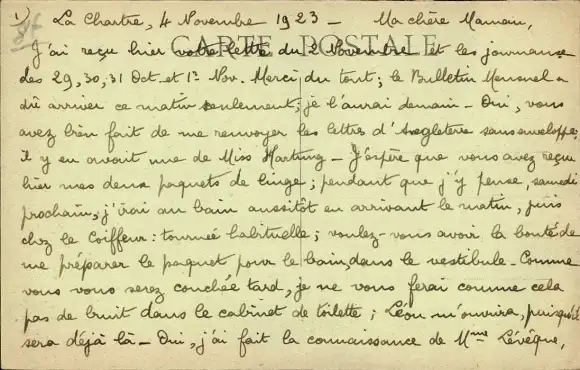 1) La Chartre, 4 Novembre 1923 - Ma chère Maman,
CARTE POSTALE
J'ai reçu hier votre lettre du 2 Novembre et les journaux
des 29, 30, 31 Oct. et 1er Nov. Merci du tout; le Bulletin Mensuel a
dû arriver ce matin seulement; je l'aurai demain - Oui, vous
avez bien fait de me renvoyer les lettres d'Angleterre sans enveloppe;
il y en avait une de Miss Hartung - J'espère que vous avez reçu
hier mes deux paquets de linge; pendant que j'y pense, samedi
prochain, j'irai au bain aussitôt en arrivant le matin, puis
chez le Coiffeur: tournée habituelle; voulez-vous avoir la bonté de
me préparer le paquet pour le bain, dans le vestibule - Comme
vous vous serez couchée tard, je ne vous ferai comme cela
pas de bruit dans le cabinet de toilette; Léon m'ouvrira, puisqu'il
sera déjà là - Oui, j'ai fait la connaissance de Mme Lévêque,